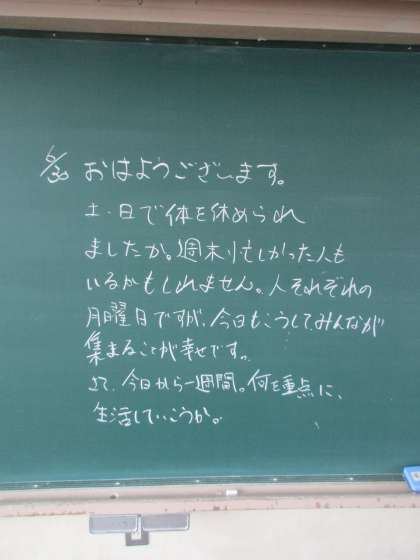 6/30 おはようございます。
土・日で体を休められ
ましたか。週末忙しかった人も
いるかもしれません。人それぞれの
月曜日ですが、今日もこうしてみんなが
集まることが幸せです。
さて、今日から一週間。何を重点に、
生活していこうか。